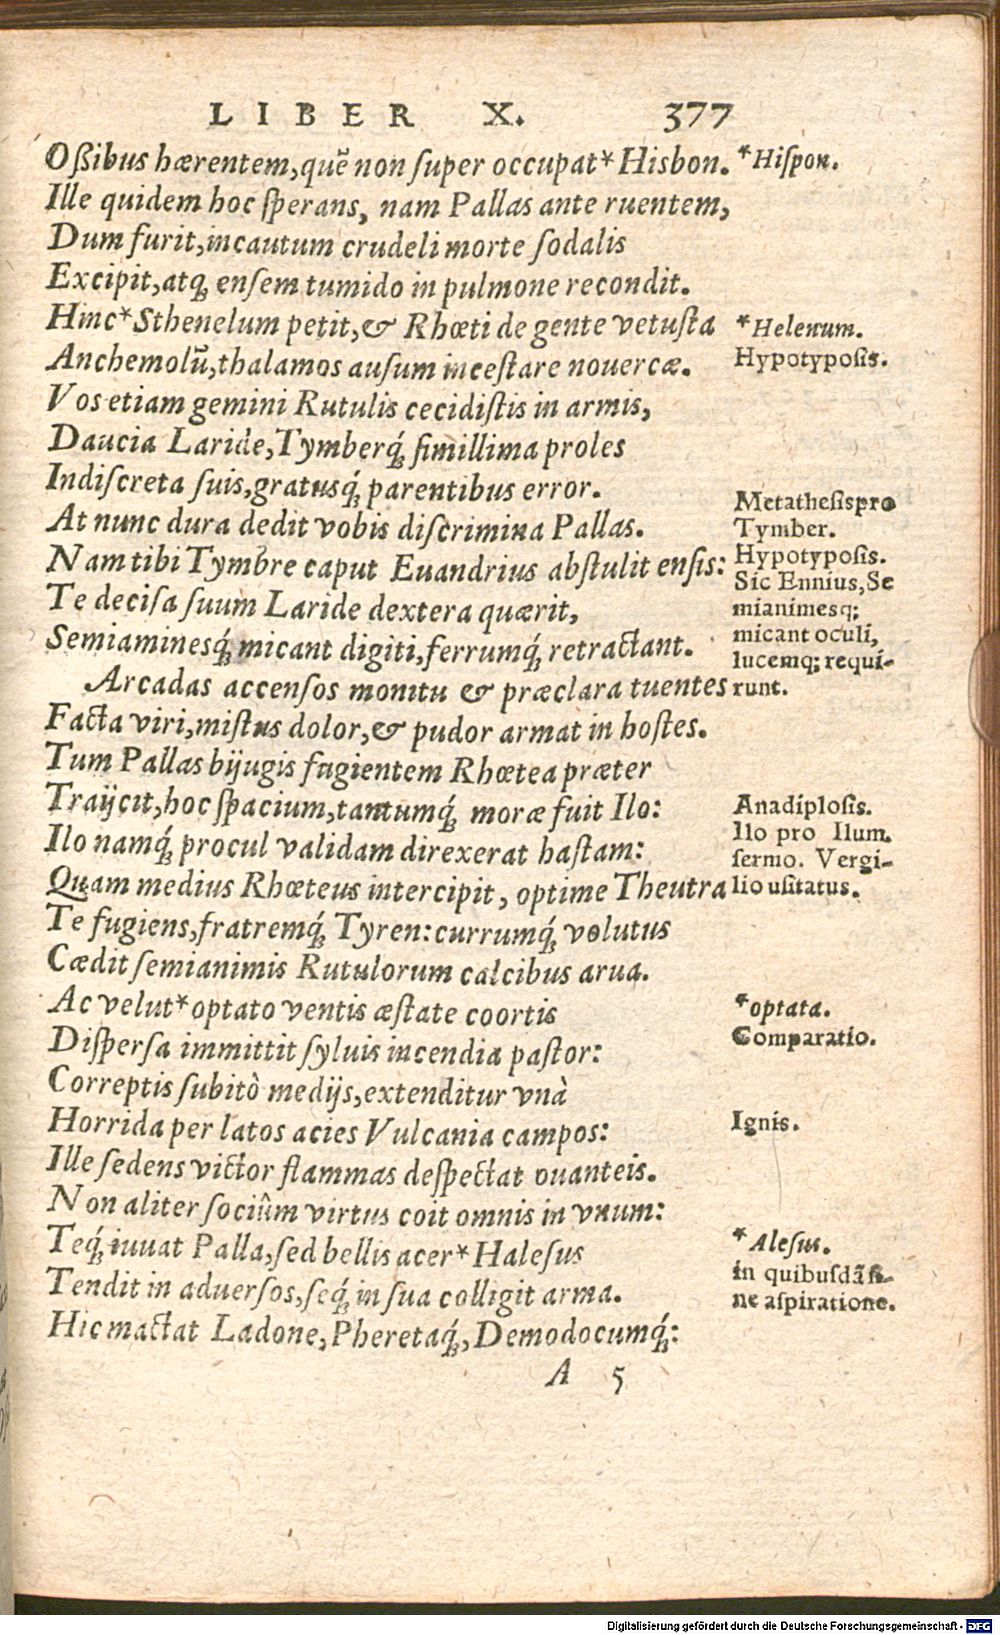 LIBER X. 377
Oßibus hærentem,quē non ſuper occupat* Hisbon.
Ille quidem hoc ſperans, nam Pallas ante ruentem,
Dum furit,incautum crudeli morte ſodalis
Excipit,atq; enſem tumido in pulmone recondit.
Hinc* Sthenelum petit,& Rhœti de gente vetuſta
Anchemolū,thalamos auſum inceſtare nouercæ.
Vos etiam gemini Rutulis cecidiſtis in armis,
Daucia Laride,Tymberq́; ſimillima proles
Indiſcreta ſuis,gratusq́; parentibus error.
At nunc dura dedit vobis diſcrimina Pallas.
Nam tibi Tymbre caput Euandrius abſtulit enſis:
Te deciſa ſuum Laride dextera quærit,
Semiaminesq́; micant digiti,ferrumq́; retractant.
Arcadas accenſos monitu & præclara tuentes
Facta viri,miſtus dolor,& pudor armat in hoſtes.
Tum Pallas bijugis fugientem Rhœtea præter
Traijcit,hoc ſpacium,tantumq́; moræ fuit Ilo:
Ilo namq́; procul validam direxerat haſtam:
Quam medius Rhœteus intercipit, optime Theutra
Te fugiens,fratremq́; Tyren:currumq́; volutus
Cædit ſemianimis Rutulorum calcibus arua.
Ac velut* optato ventis æſtate coortis
Diſperſa immittit ſyluis incendia paſtor:
Correptis ſubitò medijs,extenditur vnà
Horrida per latos acies Vulcania campos:
Ille ſedens victor flammas deſpectat ouanteis.
Non aliter ſociûm virtus coit omnis in vnum:
Teq́; iuuat Palla,ſed bellis acer* Haleſus
Tendit in aduerſos,ſeq́; in ſua colligit arma.
Hic mactat Ladone,Pheretaq́;,Demodocumq́;:
A 5
*Hiſpon.
*Helenum.
Hypotypoſis.
Metatheſis pro
Tymber.
Hypotypoſis.
Sic Ennius,Se
mianimesq;
micant oculi,
lucemq; requi-
runt.
Anadiploſis.
Ilo pro Ilum.
ſermo. Vergi-
lio uſitatus.
*optata.
Comparatio.
Ignis.
*Aleſus.
in quibuſdā ſi-
ne aſpiratione.
Digitalisierung gefördert durch die Deutsche Forschungsgemeinschaft - DFG